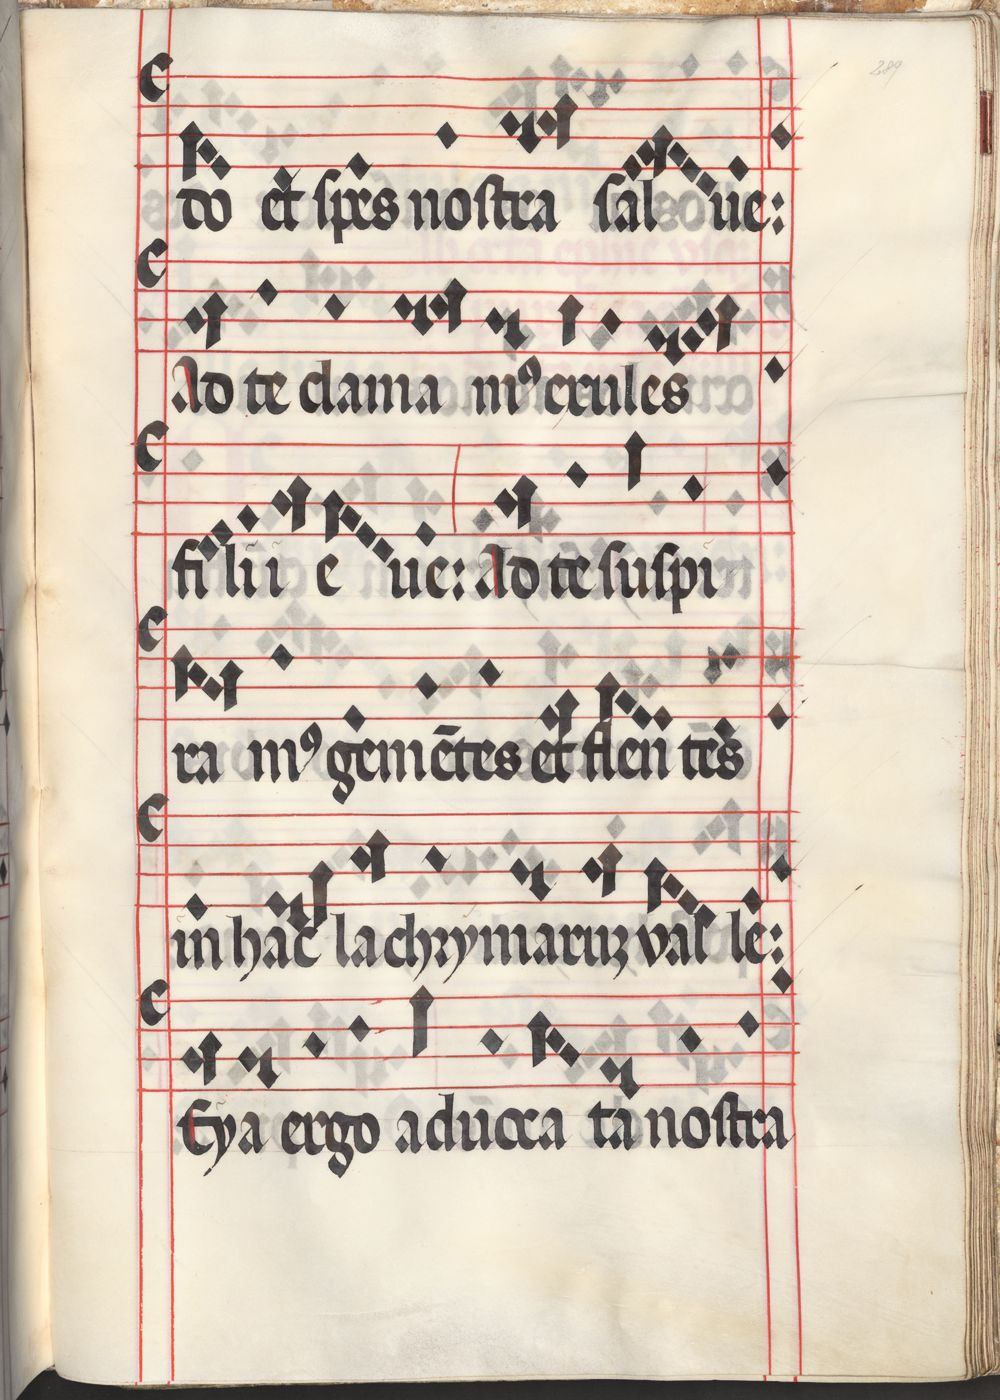 289
do et sp̃es nostra sal ue:
Ad te clama m⁹ exules
filii e ue: Ad te suspi
ra m⁹ gemẽtes et flen tes
in hac lachrymaruꝫ val le:
Eya ergo aduoca ta nostra